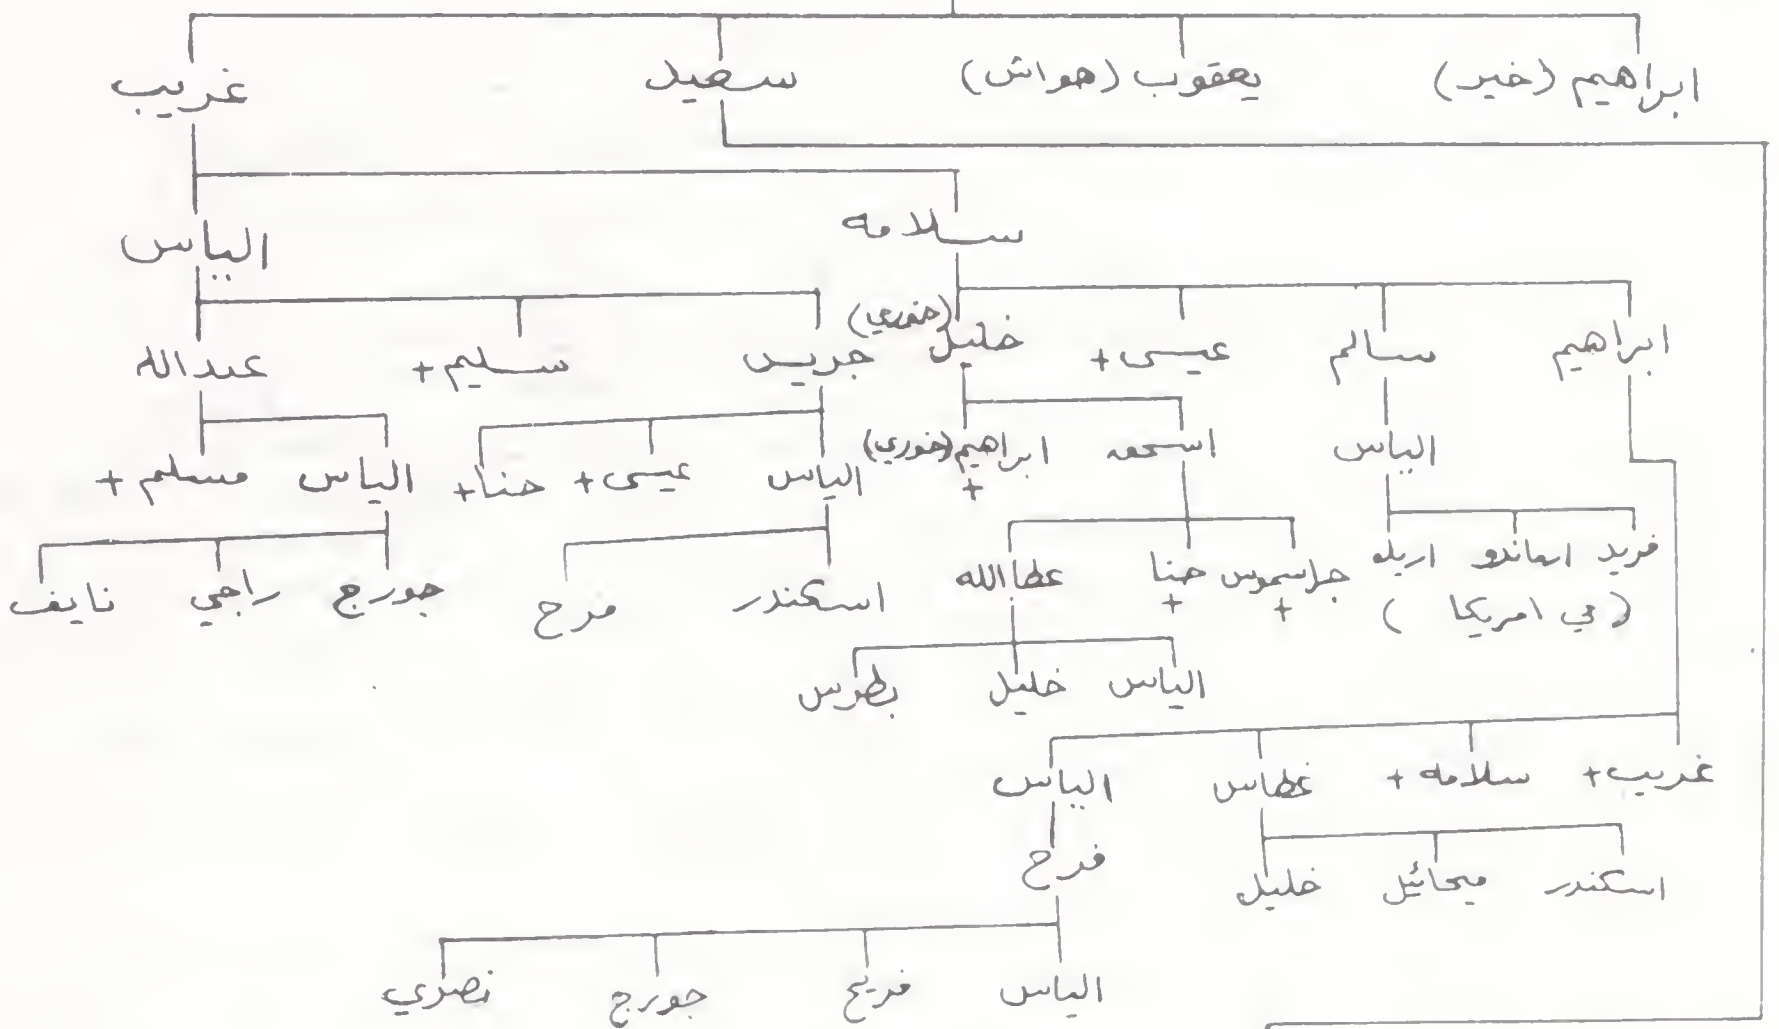 ابراهيم (خير) يعقوب (هواش) سعيد غريب
سلامه الياس
ابراهيم سالم عيسى + خليل (خوري) جريس سليم + عبدالله
الياس اسحق ابراهيم (خوري) + الياس عيسى + حنا + الياس مسلم +
فريد ارماندو جراسموس + حنا + عطاالله اسكندر فرح جورج راجي نايف
(في امريكا)
الياس خليل بطرس
غريب + سلامه + غطاس الياس
اسكندر ميخائيل خليل فرح
الياس فريح جورج نصري